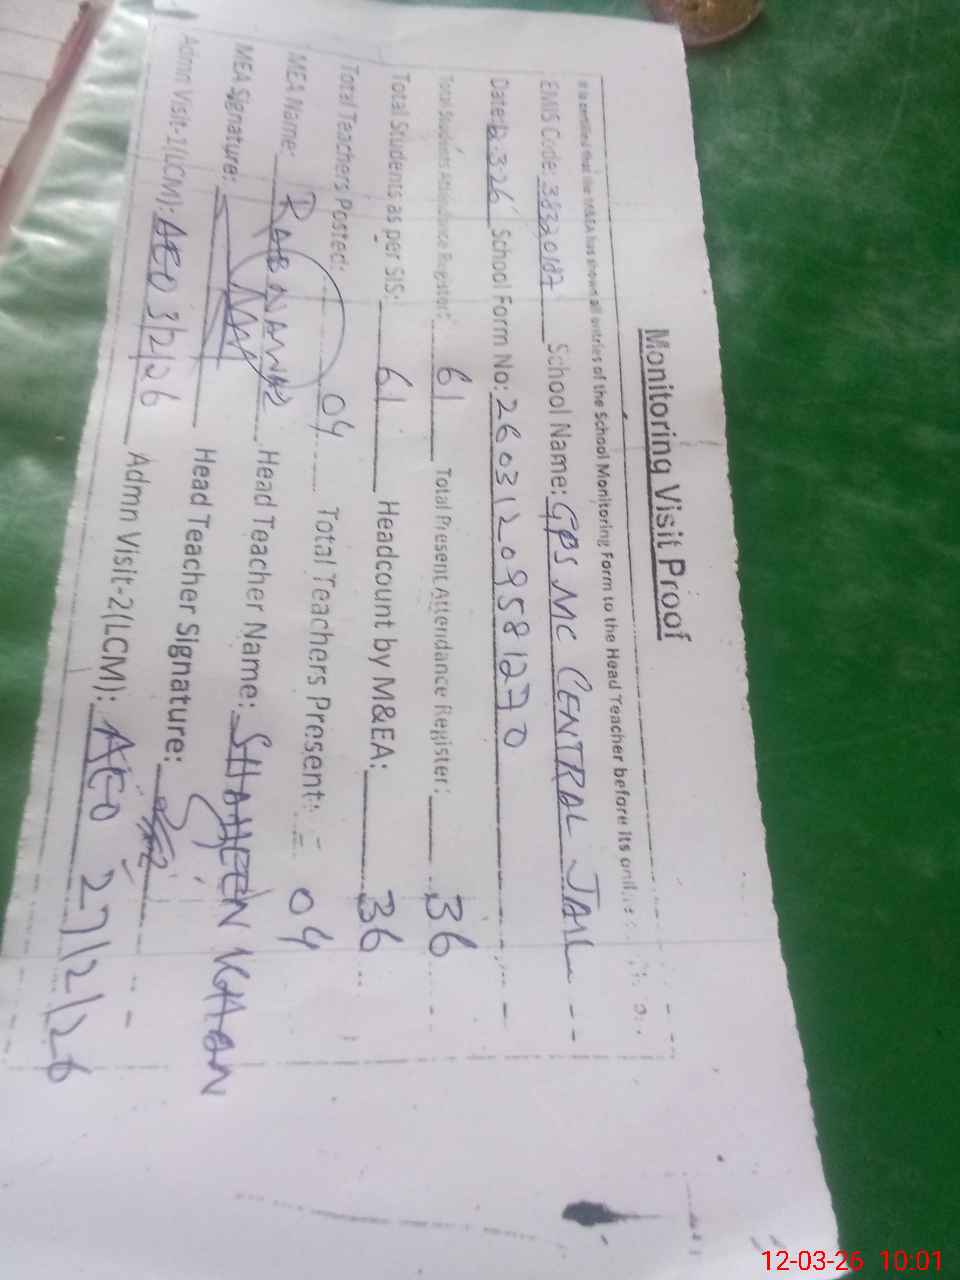 Monitoring Visit Proof
It is certified that the M&EA has shown all entries of the School Monitoring Form to the Head Teacher before its
EMIS Code: 38320187 School Name: GPS MC CENTRAL JAIL
Date: 12.3.26 School Form No: 26031209581270
Total Students Attendance Register: 61 Total Present Attendance Register: 36
Total Students as per SIS: 61 Headcount by M&EA: 36
Total Teachers Posted: 04 Total Teachers Present: 04
MEA Name: RAB NAWAZ Head Teacher Name: SHAHEEN KHAN
MEA Signature: Head Teacher Signature:
Admn Visit-1(LCM): AEO 3/2/26 Admn Visit-2(LCM): AEO 27/2/26
12-03-26 10:01